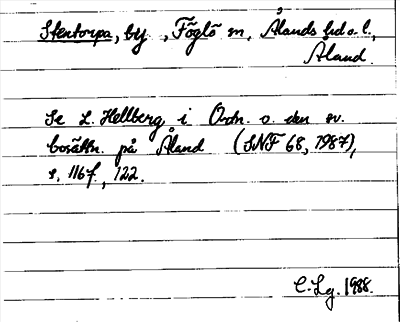 Stentorpa, by, Föglö sn, Ålands hd o. l.,
Åland.
Se L. Hellberg i Ordn. o. den sv.
bosättn. på Åland (SNF 68, 1987),
s. 116f., 122.
C. Lg. 1988.